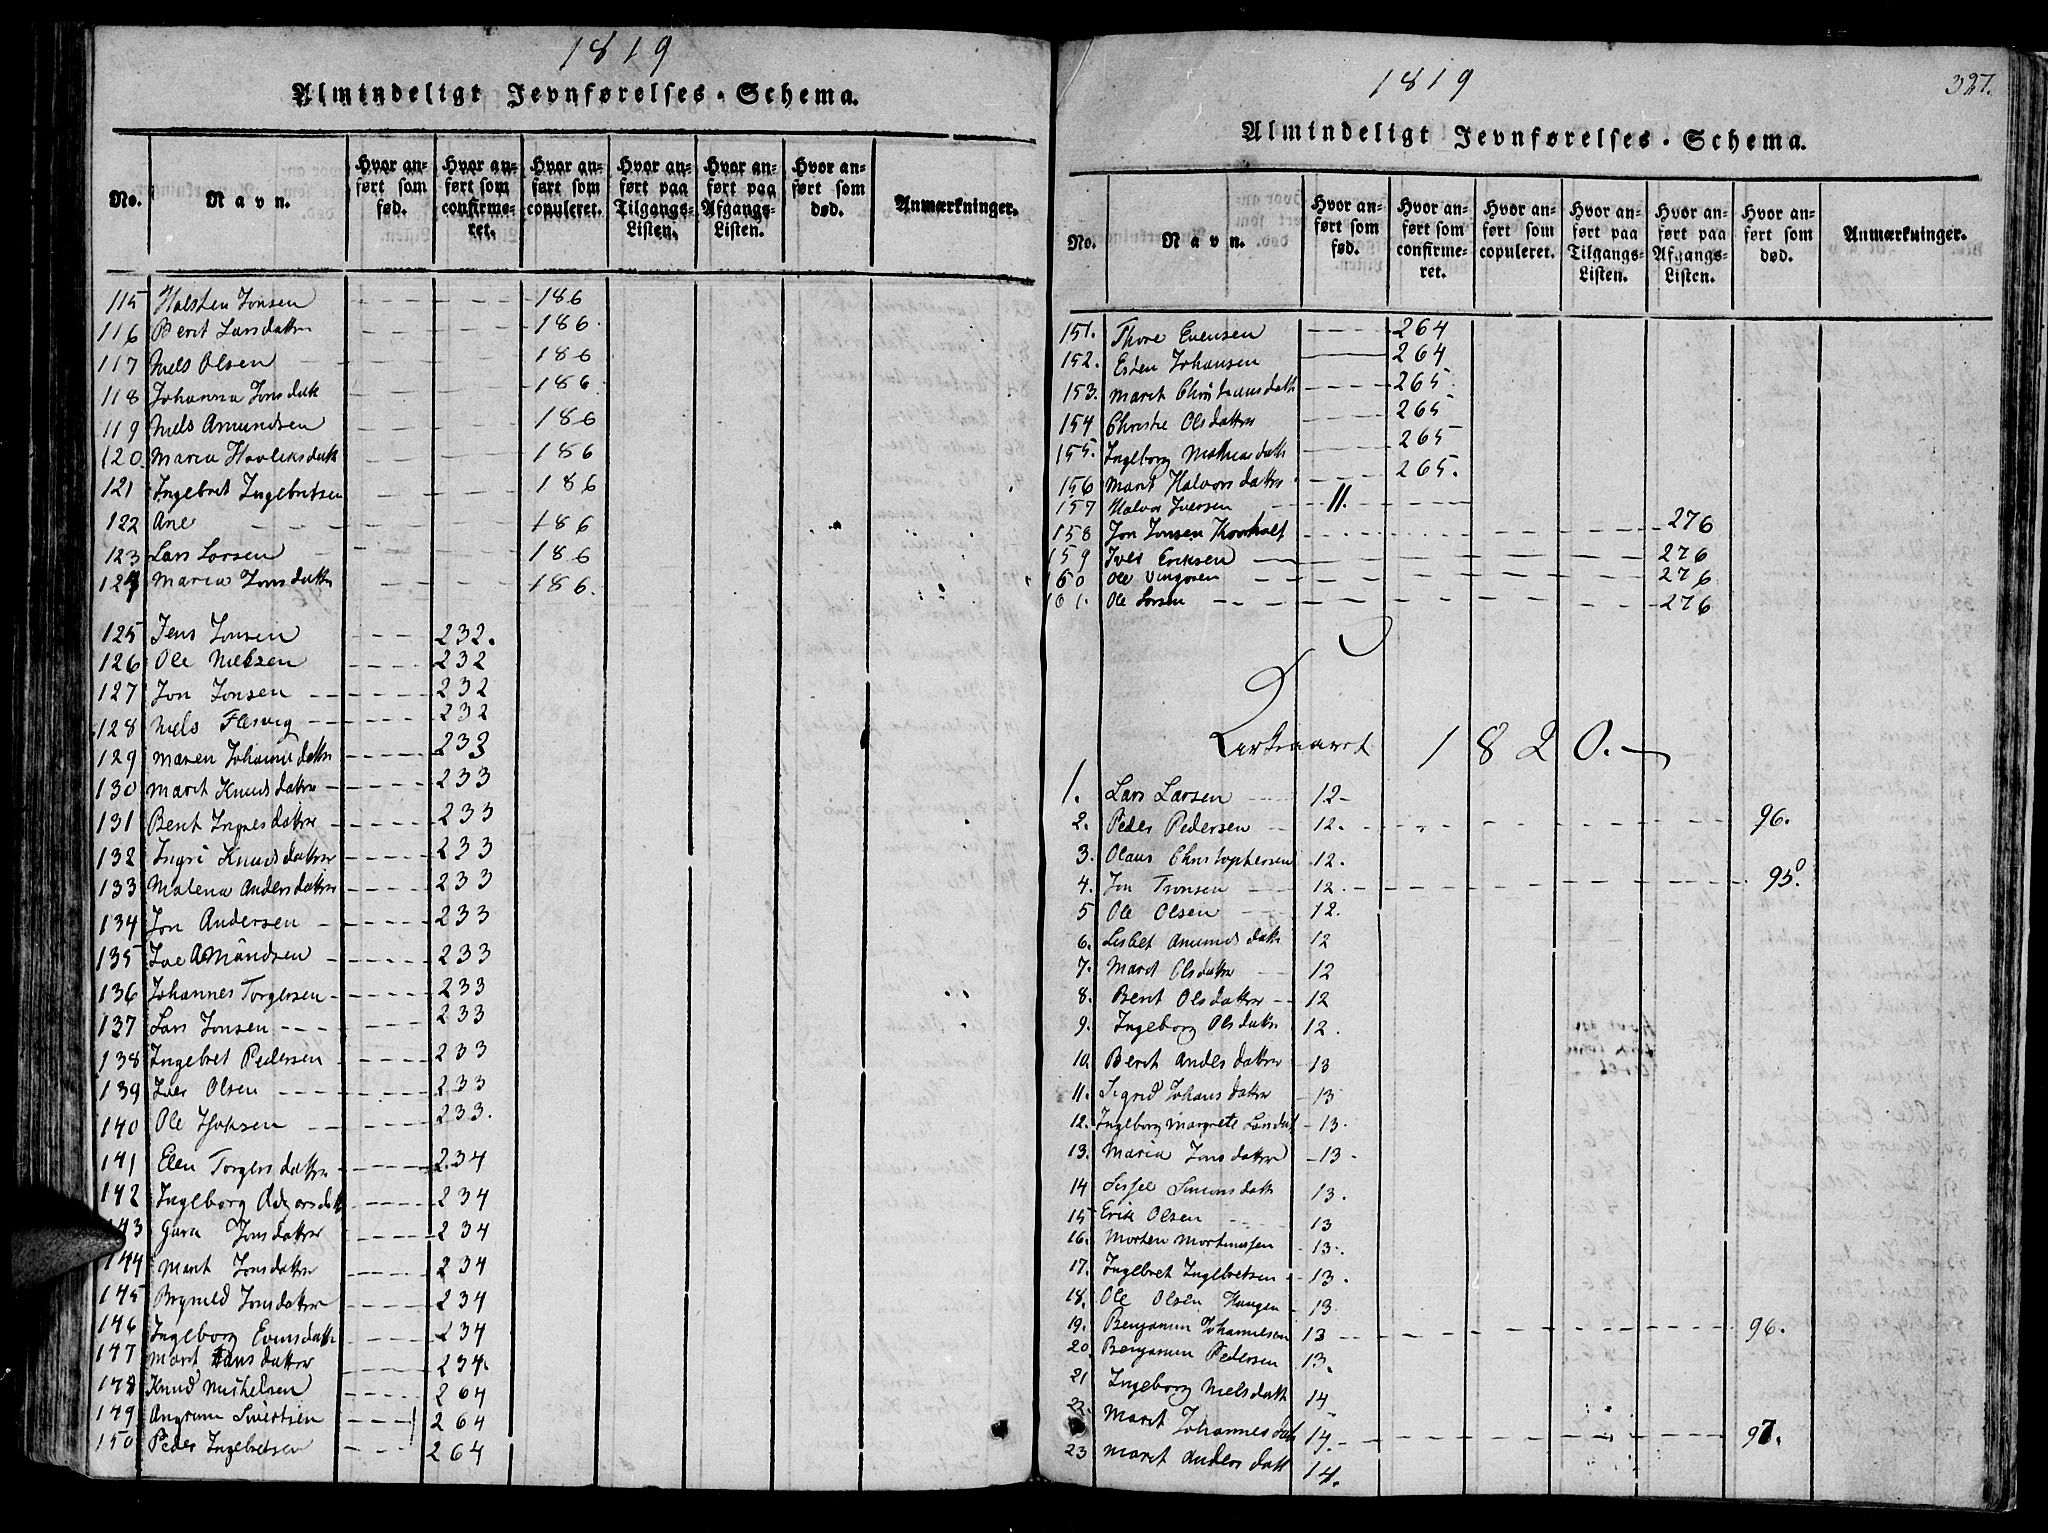 1819
Almindeligt Jevnførelses-Schema.
No. Navn. Hvor anført som fød. Hvor anført som confirmeret. Hvor anført som copuleret. Hvor anført paa Tilgangs-Listen. Hvor anført paa Afgangs-Listen. Hvor anført som død. Anmærkninger.
115 Halsten Jonsen 186
116 Berit Larsdatter 186.
117 Niels Olsen 186
118 Johanna Jonsdatt 186.
119 Niels Amundsen 186
120. Maria 186
121 Ingebret Ingebretsen 186
122 Ane 186
123 Lars Larsen 186
124 Maria Jonsdattr 186.
125 Jens Jonsen 232.
126 Ole Nielsen 232
127 Jon Jonsen 232
128 Niels 232
129 Maren Johannesdattr 233
130 Marit Knudsdatter 233
131 Berit 233
132 Ingri Knudsdatter 233
133 Malena Andersdatter 233
134 Jon Andersen 233
135 Amundsen 233
136 Johannes Torgersen 233
137 Lars Jonsen 233
138 Ingebret Pedersen 233
139 Iver Olsen 233
140 Ole 233.
141 Elen Torgersdatter 234
142 Ingeborg 234
143 Guru Jonsdatter 234
144 Marit Jonsdatter 234
145 Jonsdatter 234
146 Ingeborg Evensdatt 234
147 Marit Hansdatter 234.
148 Knud Michelsen 264
149. Sivertsen 264
150 Peder Ingebretsen 264
1819
327.
Almindeligt Jevnførelses-Schema.
No. Navn. Hvor anført som fød. Hvor anført som confirmeret. Hvor anført som copuleret. Hvor anført paa Tilgangs-Listen. Hvor anført paa Afgangs-Listen. Hvor anført som død. Anmærkninger.
151. Thore Evensen 264
152. Esten Johansen 264
153. Marit Christiansdatt 265.
154 Christie Olsdatter 265
155. Ingeborg Mathiasdatt 265
156 Marit Halvorsdatter 265.
157 Halvor Iversen 11.
158 Jon Jonsen 276
159 Iver Eriksen 276
160 Ole 276
161. Ole Larsen 276
Kirkeaaret 1820.
1. Lars Larsen 12
2. Peder Pedersen 12. 96.
3. Olaus Christophersen 12.
4. Jon Tronsen 12. 95.
5 Ole Olsen 12.
6. Lisbet Amundsdatt 12
7. Marit Olsdatter 12
8. Berit Olsdatter 12
9. Ingeborg Olsdatter 12.
10. Berit Andersdatter 13
11. Sigrid Johansdatter 13
12. Ingeborg Margrete 13.
13. Maria Jonsdatter 13
14 Sissel Simonsdatt 13.
15 Erik Olsen 13
16. Morten Mortensen 13.
17. Ingebret Ingebretsen 13.
18. Ole Olsen Haugen 13.
19. Benjamin Johannesen 13 96.
20. Benjamin Pedersen 13.
21 Ingeborg Nielsdatt 14
22. Marit Johannesdatt 14. 97.
23 Marit Andersdatt 14.